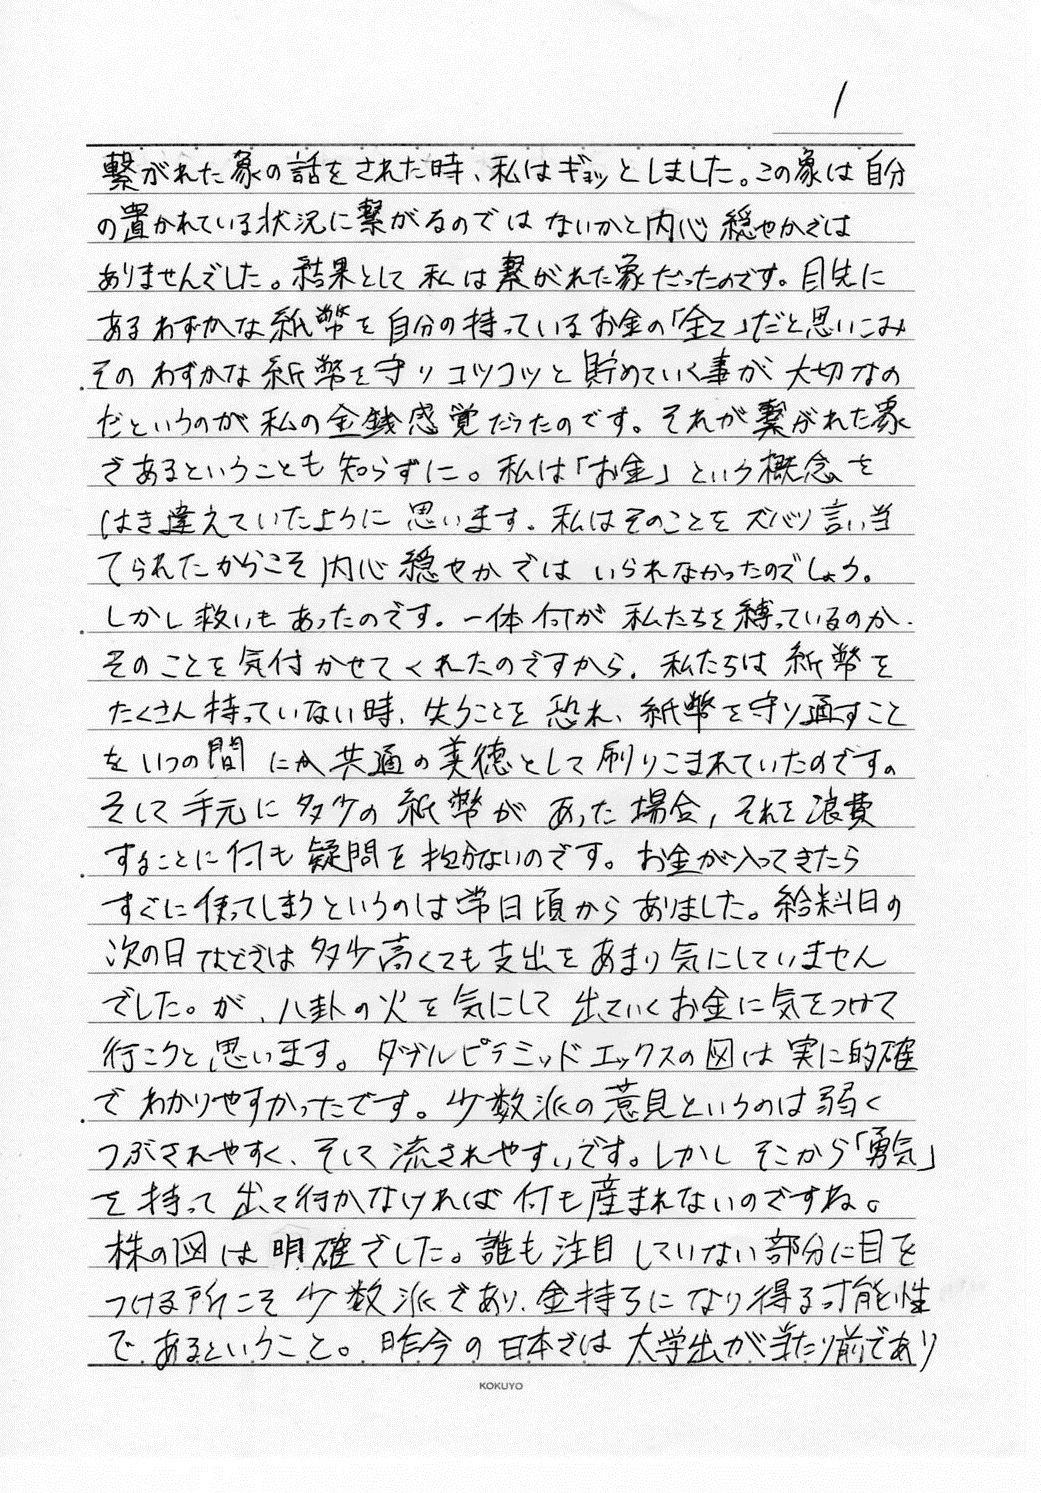 1
繋がれた象の話をされた時、私はギョッとしました。この象は自分
の置かれている状況に繋がるのではないかと内心穏やかでは
ありませんでした。結果として私は繋がれた象だったのです。目先に
あるわずかな紙幣を自分の持っているお金の「全て」だと思いこみ
そのわずかな紙幣を守りコツコツと貯めていく事が大切なの
だというのが私の金銭感覚だったのです。それが繋がれた象
であるということも知らずに。私は「お金」という概念を
はき違えていたように思います。私はそのことをズバリ言い当
てられたからこそ内心穏やかではいられなかったのでしょう。
しかし救いもあったのです。一体何が私たちを縛っているのか、
そのことを気付かせてくれたのですから。私たちは紙幣を
たくさん持っていない時、失うことを恐れ、紙幣を守り通すこと
をいつの間にか共通の美徳として刷りこまれていたのです。
そして手元に多少の紙幣があった場合、それを浪費
することに何も疑問を抱かないのです。お金が入ってきたら
すぐに使ってしまうというのは常日頃からありました。給料日の
次の日などでは多少高くても支出をあまり気にしていません
でした。が、八卦の火を気にして出ていくお金に気をつけて
行こうと思います。ダブルピラミッドエックスの図は実に的確
でわかりやすかったです。少数派の意見というのは弱く
つぶされやすく、そして流されやすいです。しかしそこから「勇気」
を持って出て行かなければ何も産まれないのですね。
株の図は明確でした。誰も注目していない部分に目を
つける所こそ少数派であり、金持ちになり得る可能性
であるということ。昨今の日本では大学出が当たり前であり
KOKUYO